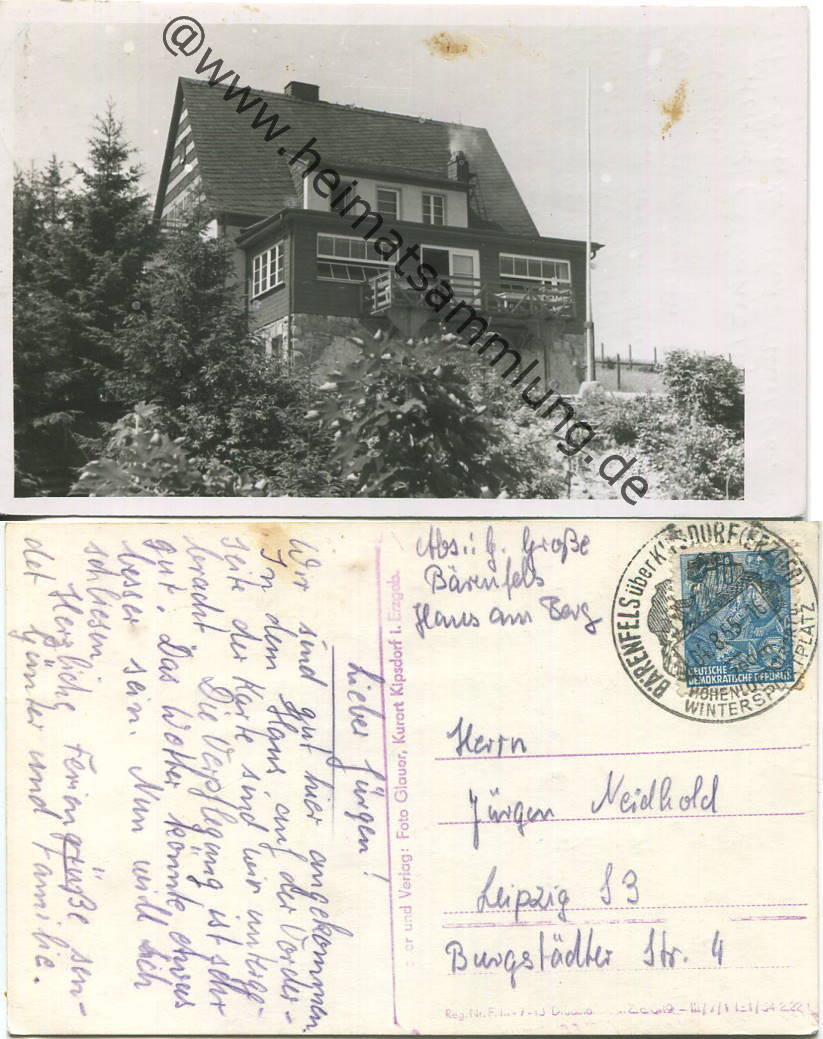 @www.heimatsammlung.de
Abs.: G. Große
Bärenfels
Haus am Berg
BÄRENFELS über KIPSDORF (ERZGEB)
WINTERSPORTPLATZ
DEUTSCHE
DEMOKRATISCHE REPUBLIK
Herrn
Jürgen Neidhold
Leipzig S 3
Burgstädter Str. 4
und Verlag: Foto Glauer, Kurort Kipsdorf i. Erzgeb.
Lieber Jürgen!
Wir sind gut hier angekommen.
In dem Haus auf der Vorder-
seite der Karte sind wir unterge-
bracht. Die Verpflegung ist sehr
gut. Das Wetter könnte etwas
besser sein. Nun will ich
schliesen
Herzliche Feriengrüße sen-
det Günter und Familie.
Reg. Nr.